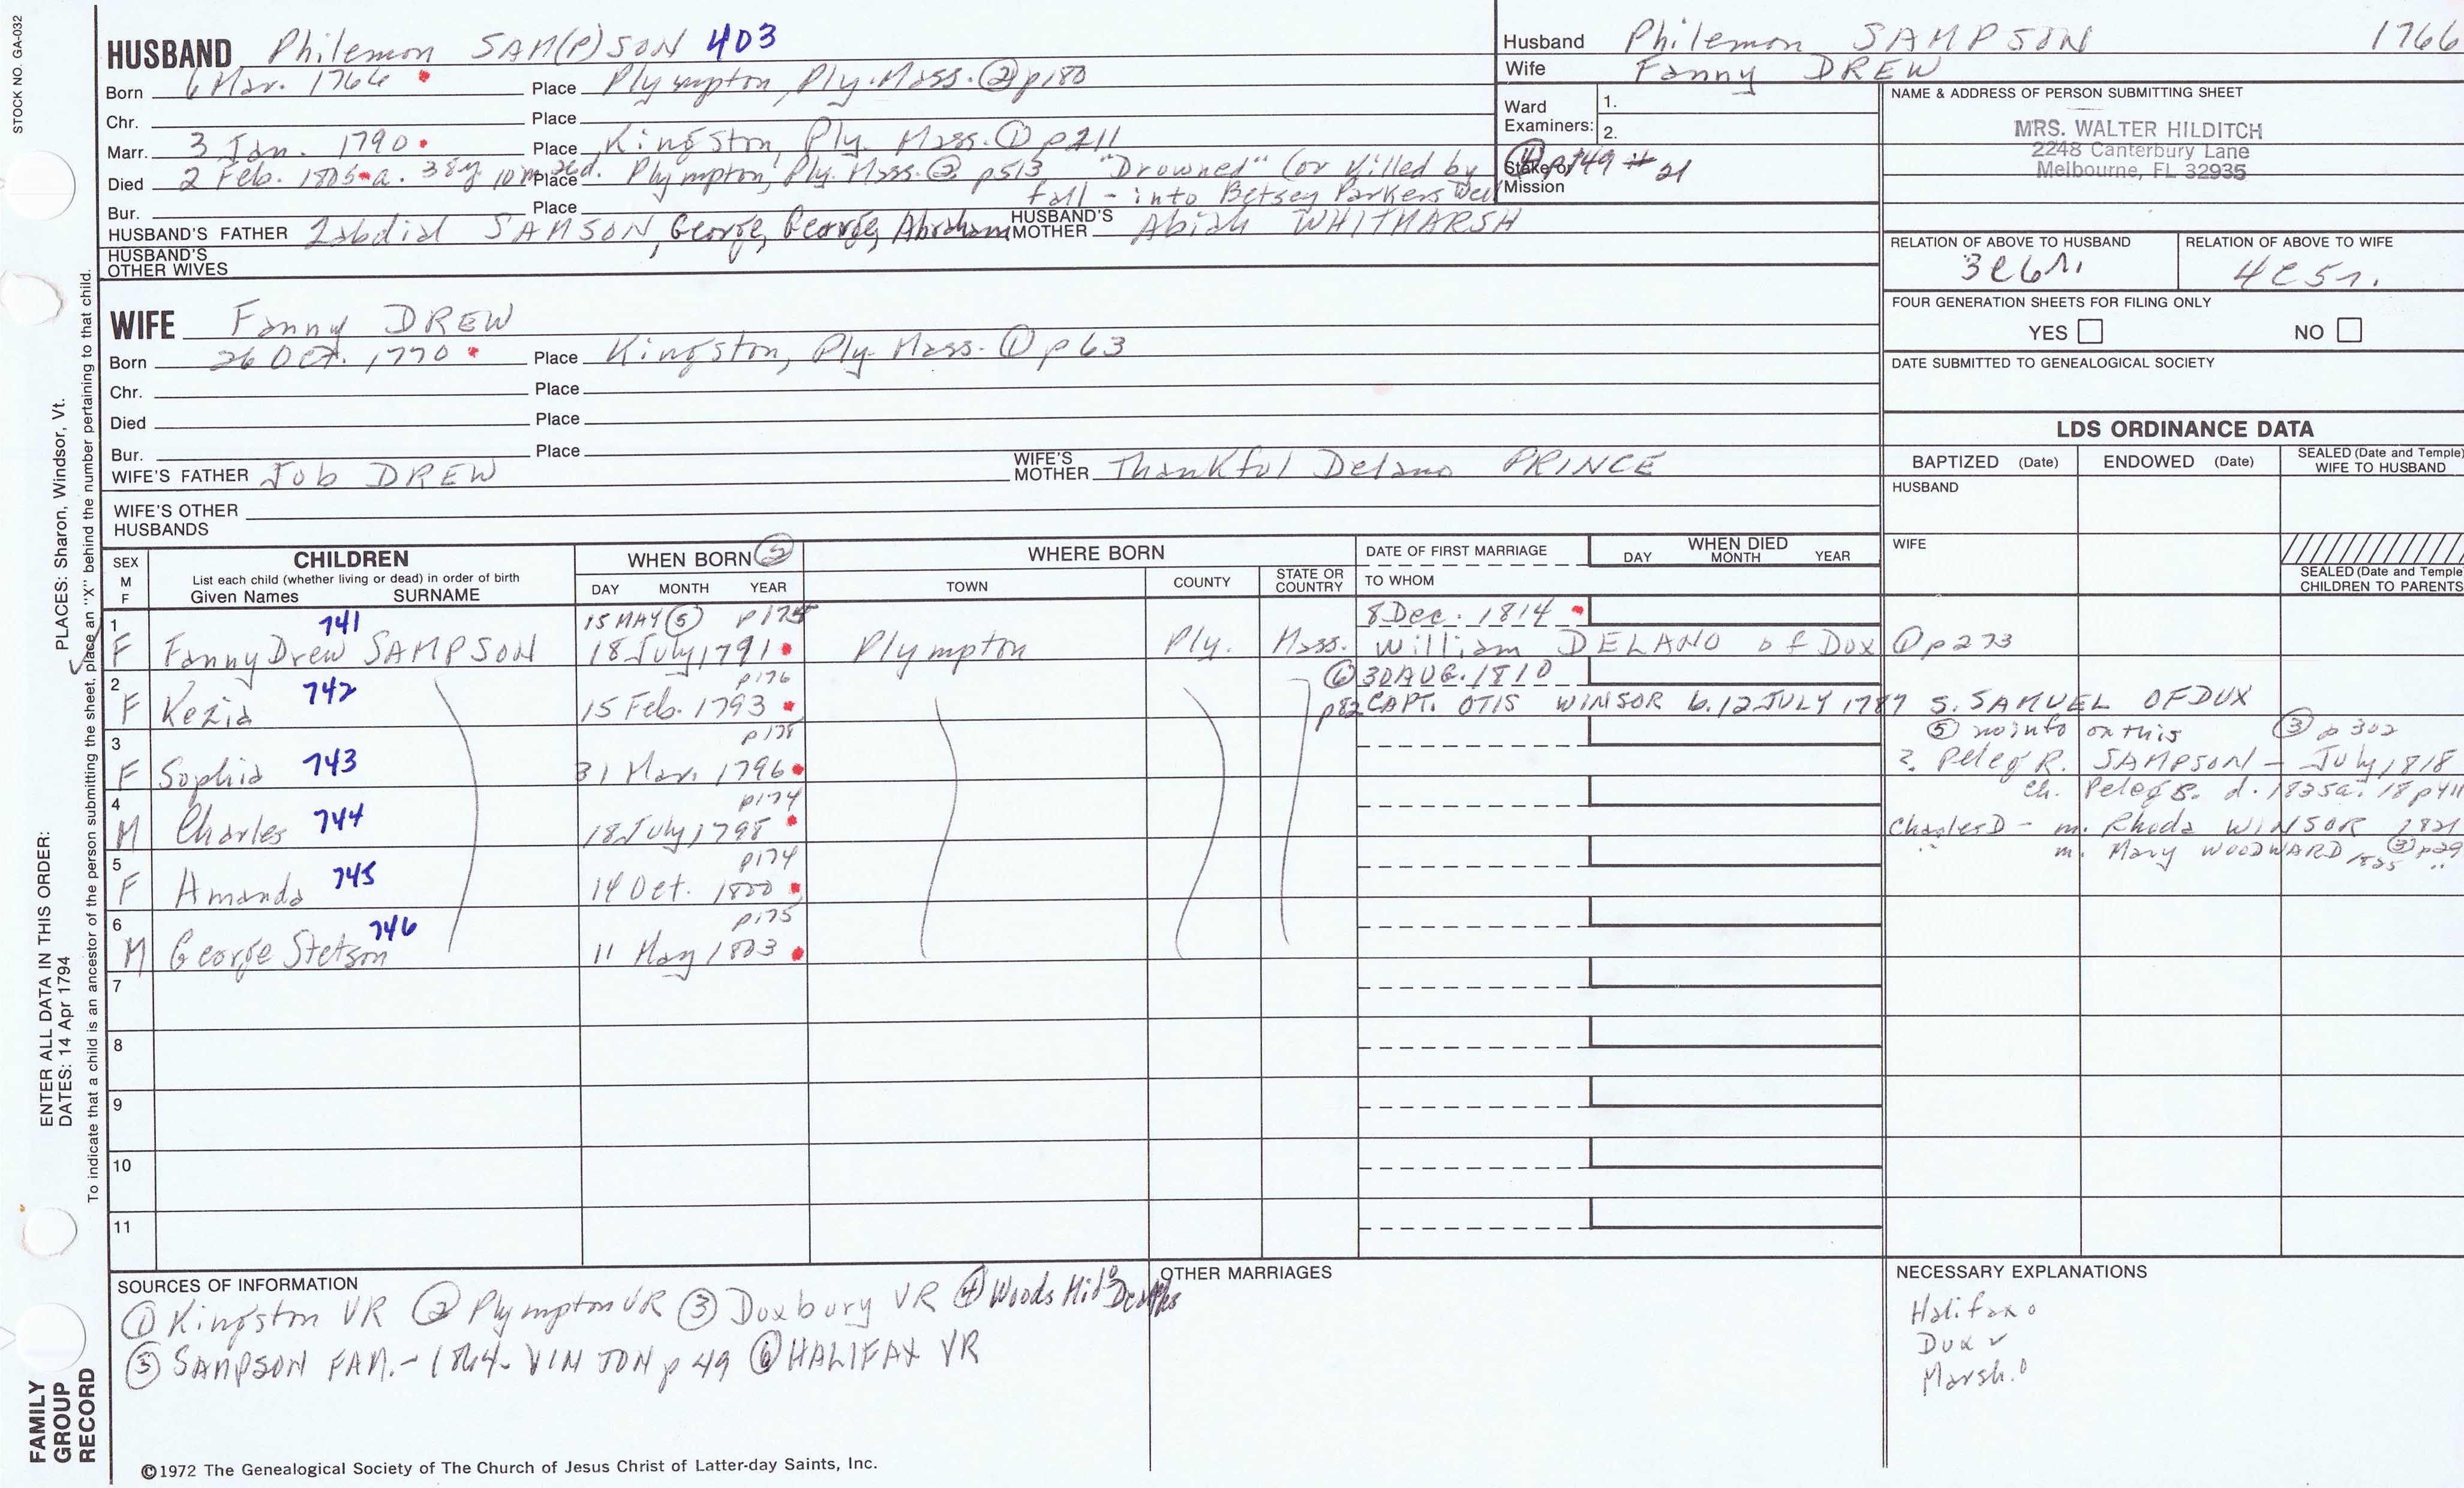 STOCK NO. GA-032
HUSBAND Philemon SAM(P)SON 403
Born 6 Mar. 1766 Place Plympton, Ply. Mass. ② p180
Chr. Place
Marr. 3 Jan. 1790 Place Kingston, Ply. Mass. ① p211
Died 2 Feb. 1805 a. 38y 10m 26d. Place Plympton, Ply. Mass. ② p513 "Drowned" (or killed by
fall - into Betsey Parkers Well
Bur. Place
HUSBAND'S FATHER Zabdial SAMSON, George, George, Abraham HUSBAND'S MOTHER Abiah WHITMARSH
HUSBAND'S OTHER WIVES
Husband Philemon SAMPSON 1766
Wife Fanny DREW
Ward Examiners: 1.
2.
Stake or Mission ④ p149 # 21
NAME & ADDRESS OF PERSON SUBMITTING SHEET
MRS. WALTER HILDITCH
2248 Canterbury Lane
Melbourne, FL 32935
RELATION OF ABOVE TO HUSBAND RELATION OF ABOVE TO WIFE
3C6r. 4C5r.
FOUR GENERATION SHEETS FOR FILING ONLY
YES NO
DATE SUBMITTED TO GENEALOGICAL SOCIETY
WIFE Fanny DREW
Born 26 Oct. 1770 Place Kingston, Ply. Mass. ① p63
Chr. Place
Died Place
Bur. Place
WIFE'S FATHER Job DREW WIFE'S MOTHER Thankful Delano PRINCE
WIFE'S OTHER HUSBANDS
LDS ORDINANCE DATA
BAPTIZED (Date) ENDOWED (Date) SEALED (Date and Temple) WIFE TO HUSBAND
HUSBAND
WIFE
SEALED (Date and Temple) CHILDREN TO PARENTS
SEX M F CHILDREN WHEN BORN ⑤ WHERE BORN DATE OF FIRST MARRIAGE WHEN DIED
List each child (whether living or dead) in order of birth
Given Names SURNAME DAY MONTH YEAR TOWN COUNTY STATE OR COUNTRY TO WHOM DAY MONTH YEAR
1 741 15 MAY ⑤ p175 8 Dec. 1814
F Fanny Drew SAMPSON 18 July 1791 Plympton Ply. Mass. William DELANO of Dux ① p273
2 742 p176 ⑥ 30 AUG. 1810
F Kezia 15 Feb. 1793 p82 CAPT. OTIS WINSOR b. 12 JULY 1787 S. SAMUEL OF DUX
3 743 p178 ⑤ no info on this ③ p302
F Sophia 31 Mar. 1796 ?. Peleg R. SAMPSON - July 1818
4 744 p174 ch. Peleg S. d. 1835 a. 18 p411
M Charles 18 July 1798 Charles D - m. Rhoda WINSOR 1821
5 745 p174 " m. Mary WOODWARD 1825 ③ p29
F Amanda 14 Oct. 1800
6 746 p175
M George Stetson 11 May 1803
7
8
9
10
11
SOURCES OF INFORMATION
① Kingston VR ② Plympton VR ③ Duxbury VR ④ Woods Deaths
⑤ SAMPSON FAM. - 1864 - VINTON p 49 ⑥ HALIFAX VR
OTHER MARRIAGES
NECESSARY EXPLANATIONS
Halifax o
Dux ✓
Marsh. o
©1972 The Genealogical Society of The Church of Jesus Christ of Latter-day Saints, Inc.
FAMILY GROUP RECORD
ENTER ALL DATA IN THIS ORDER:
DATES: 14 Apr 1794
PLACES: Sharon, Windsor, Vt.
To indicate that a child is an ancestor of the person submitting the sheet, place an "X" behind the number pertaining to that child.